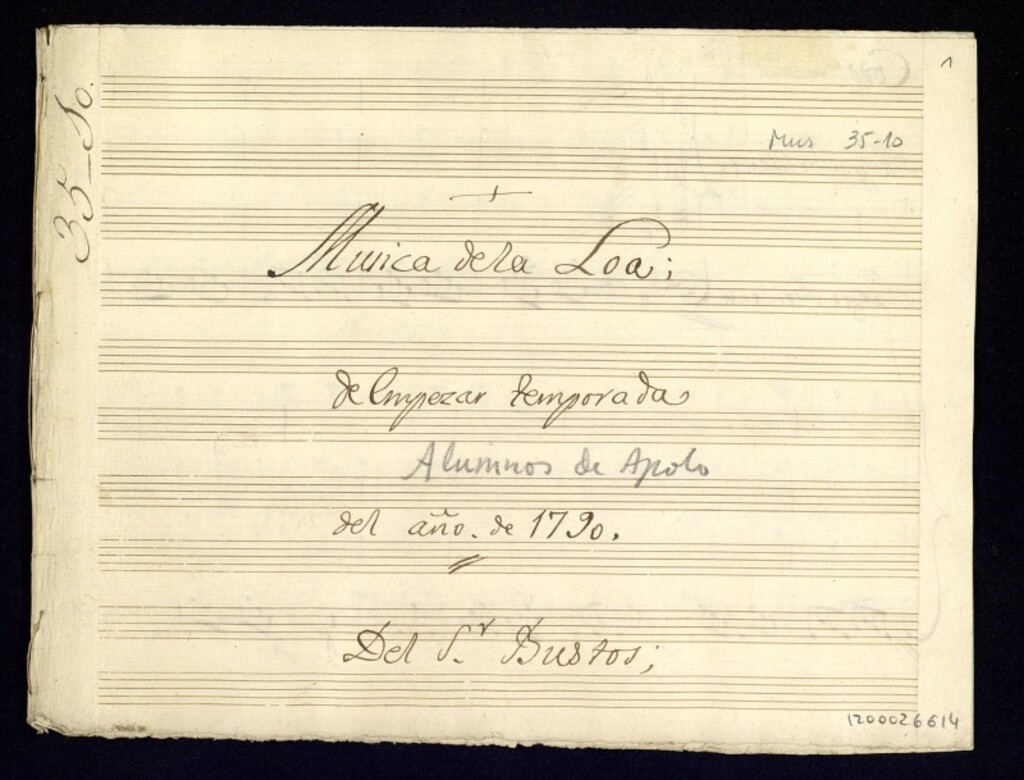 1
35-10.
Mus 35-10
+
Musica de la Loa;
de Empezar temporada
Alumnos de Apolo
del año. de 1790.
Del S.r Bustos;
1200026614